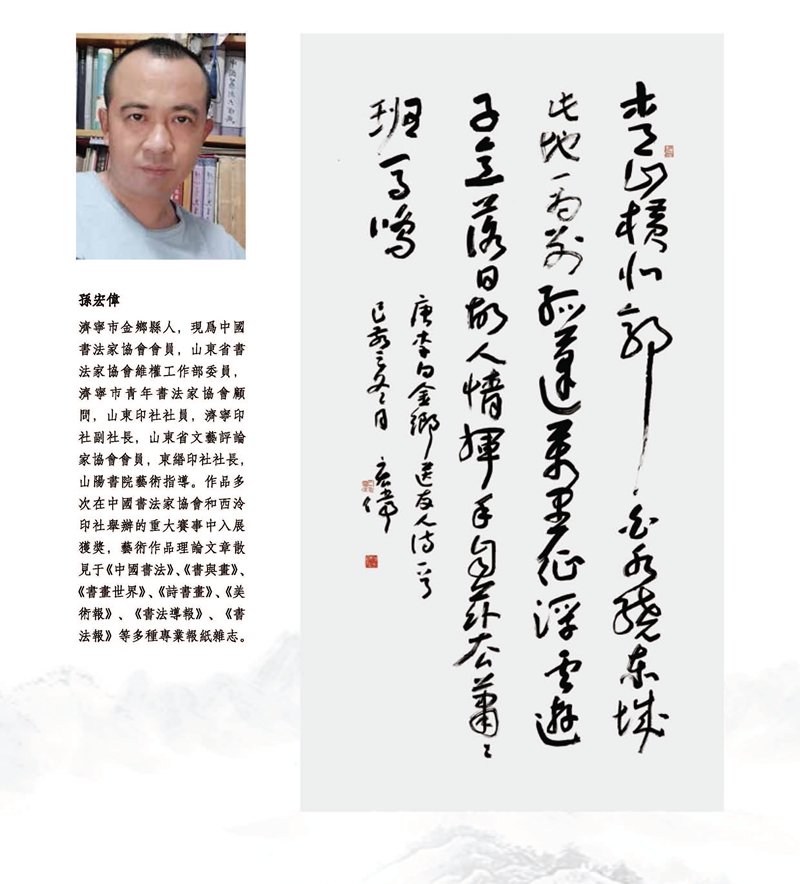 孫宏偉
濟寧市金鄉縣人，現爲中國
書法家協會會員，山東省書
法家協會維權工作部委員，
濟寧市青年書法家協會顧
問，山東印社社員，濟寧印
社副社長，山東省文藝評論
家協會會員，東緡印社社長，
山陽書院藝術指導。作品多
次在中國書法家協會和西泠
印社舉辦的重大賽事中入展
獲獎，藝術作品理論文章散
見于《中國書法》、《書與畫》、
《書畫世界》、《詩書畫》、《美
術報》、《書法導報》、《書
法報》等多種專業報紙雜志。
青山橫北郭白水繞東城
此地一为别孤蓬萬里征浮雲遊
子意落日故人情揮手自茲去蕭〻
班馬鳴
唐李白金鄉送友人诗一首
己亥三月 宏偉